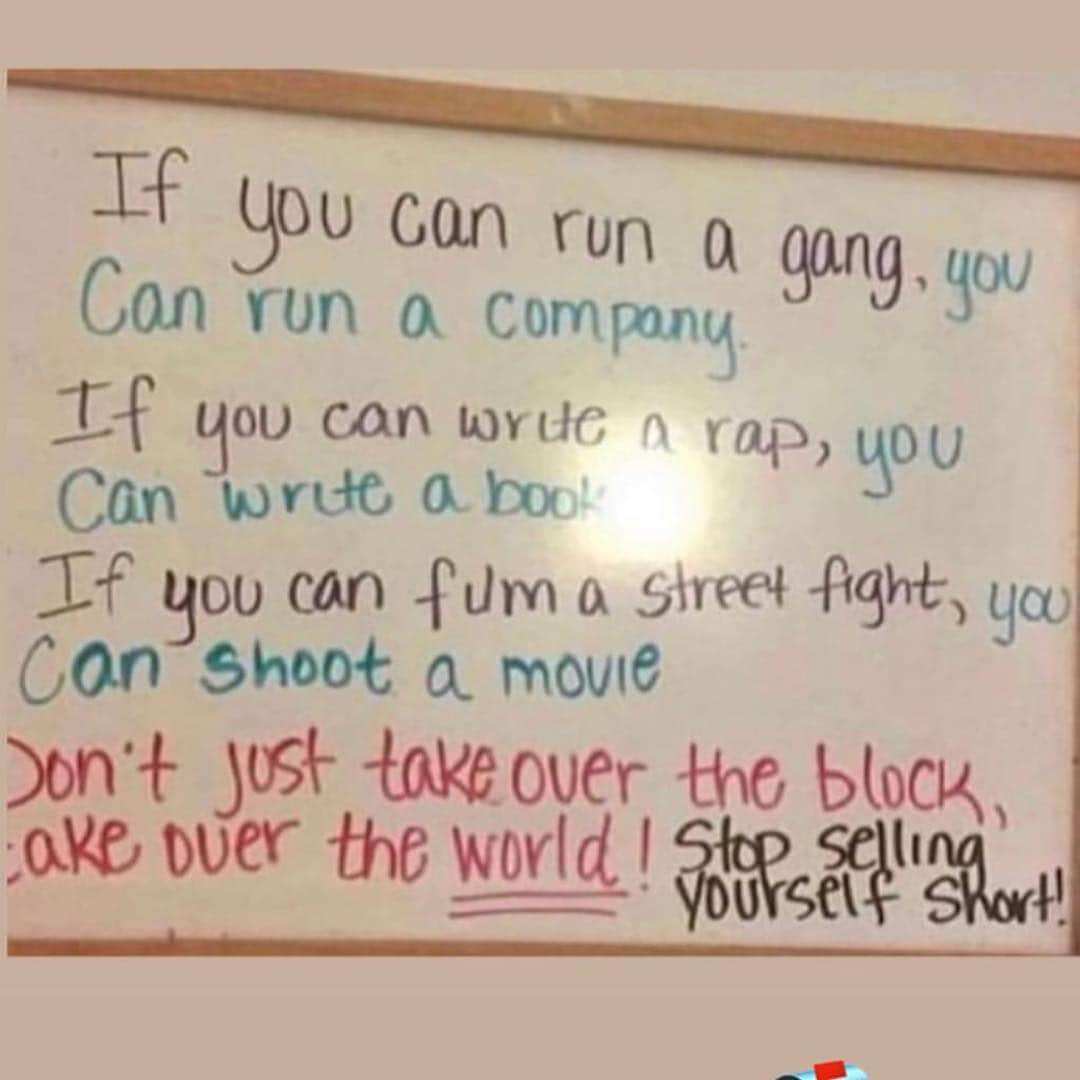 If you can run a gang, you
Can run a company.
If you can write a rap, you
Can write a book
If you can film a street fight, you
Can shoot a movie
Don't just take over the block,
take over the world! Stop selling
yourself short!